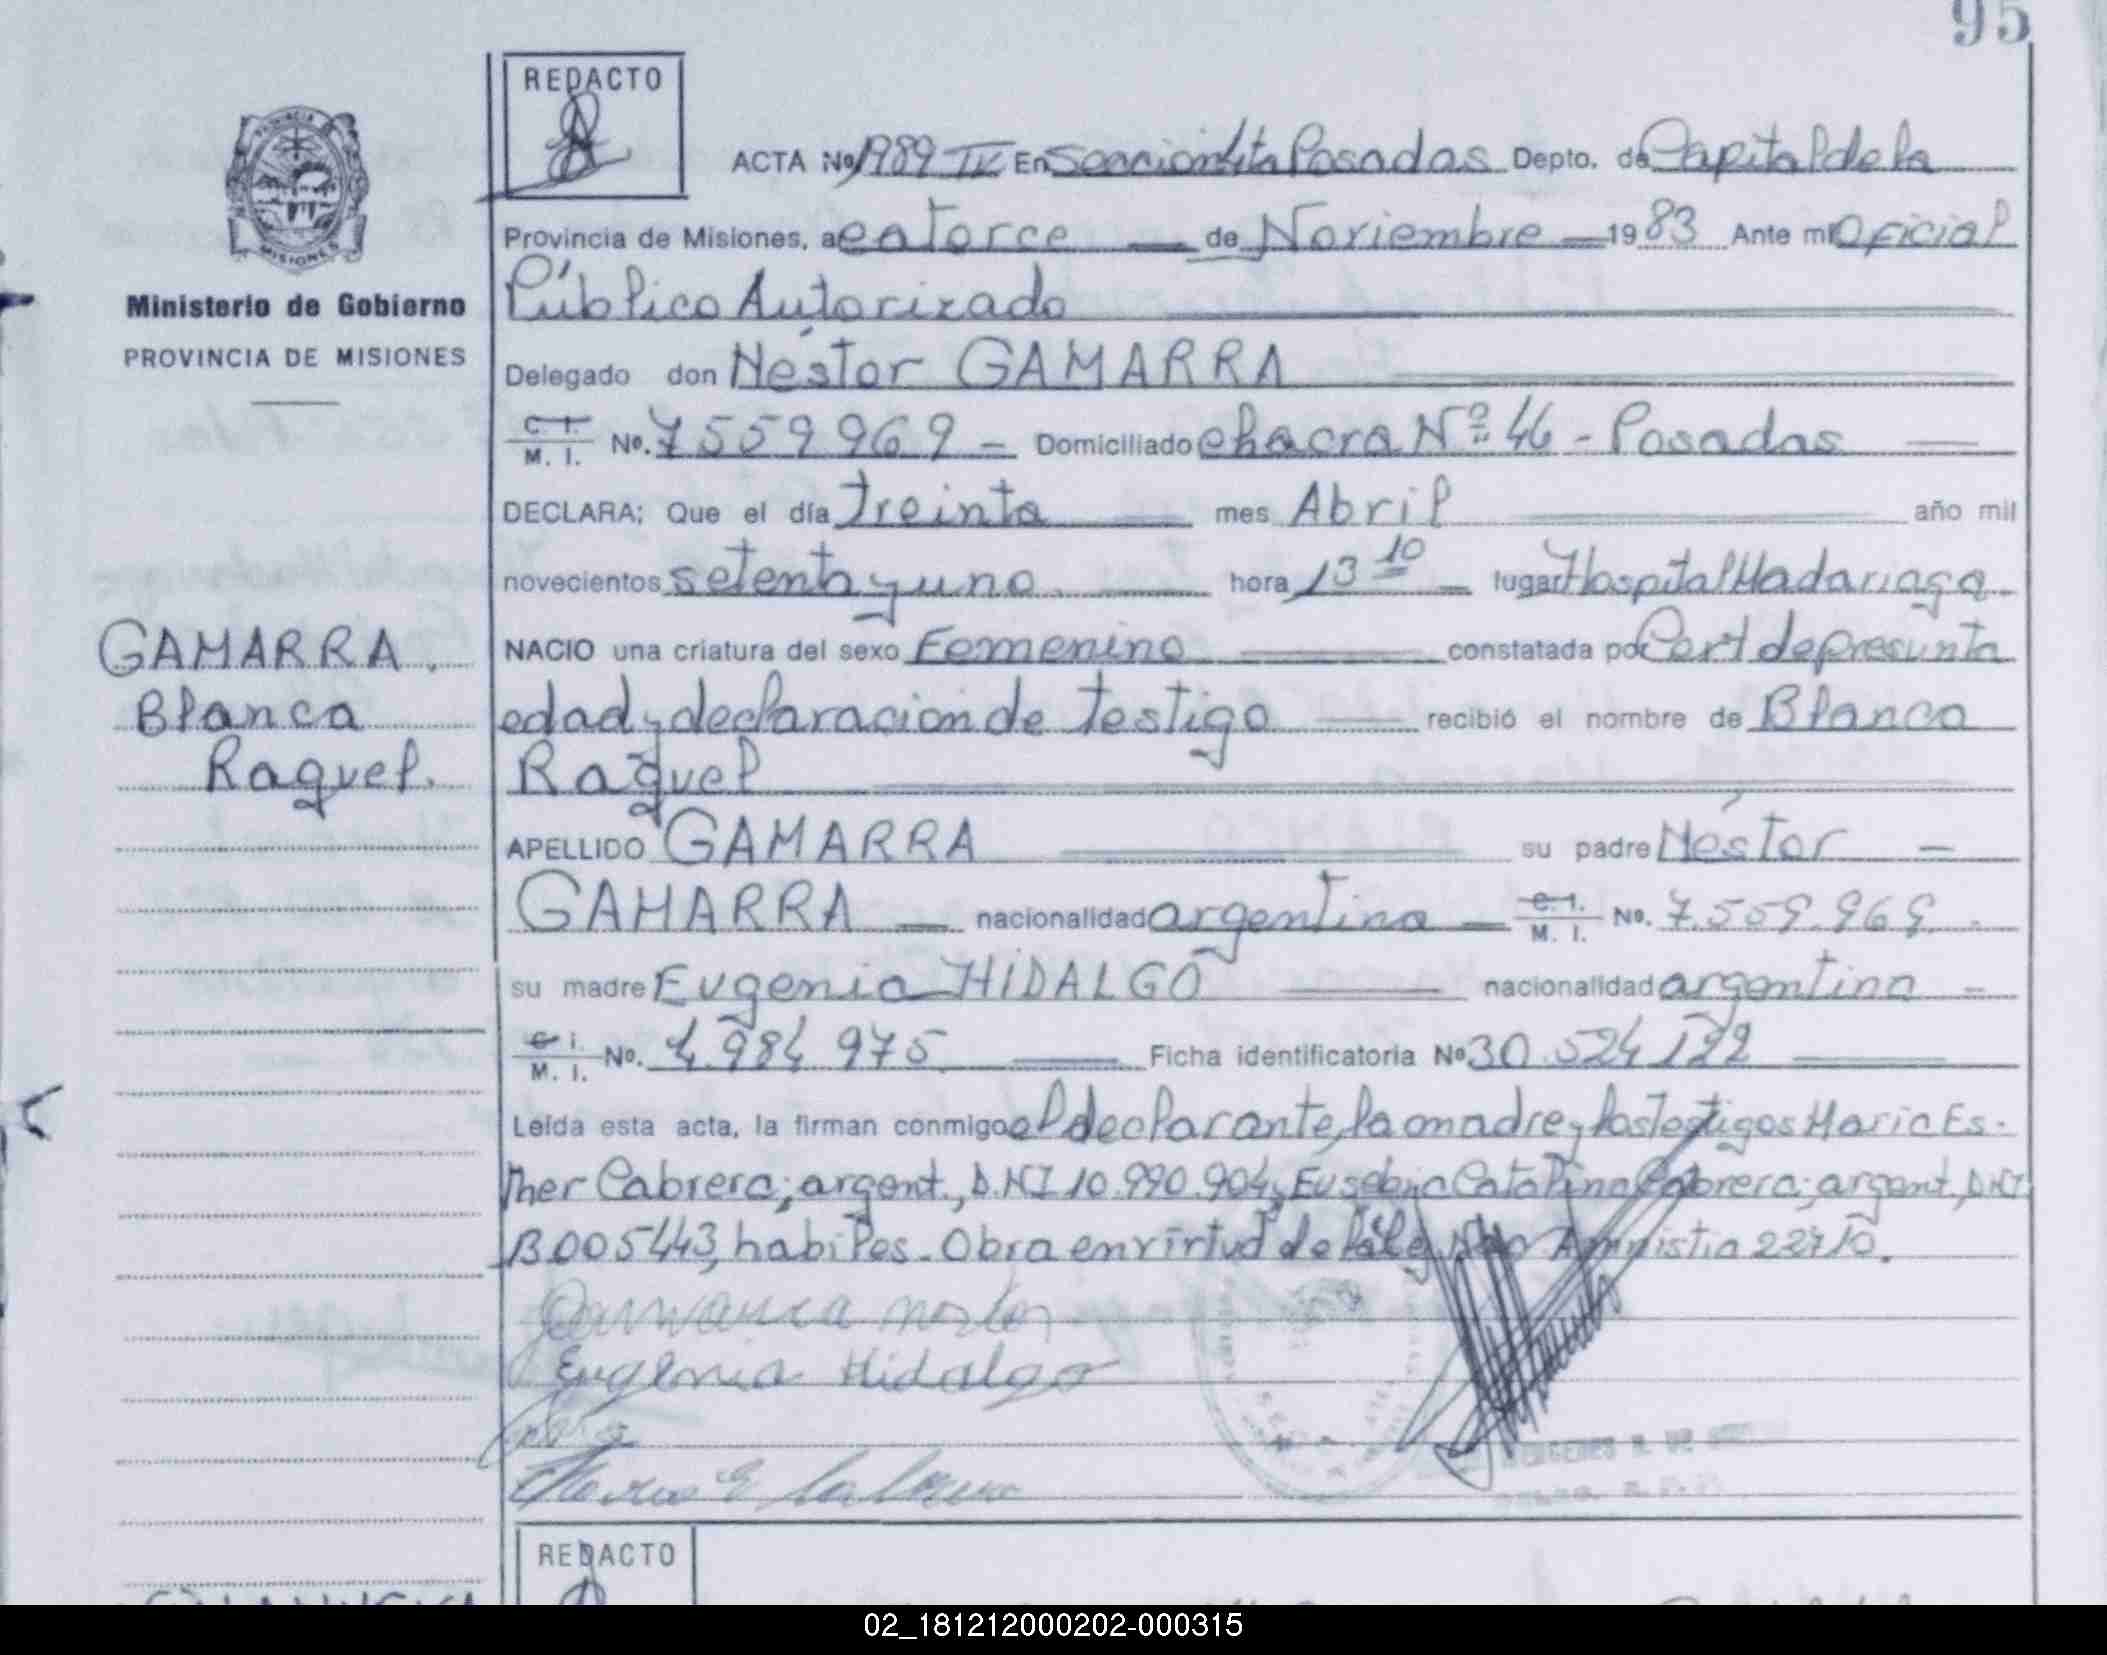 95
REDACTO
ACTA No 1989 IV En Sección 4ta Posadas Depto. de Capital de la
Provincia de Misiones, a catorce de Noviembre 1983 Ante mi Oficial
Público Autorizado
Ministerio de Gobierno
PROVINCIA DE MISIONES
Delegado don Néstor GAMARRA
C. I.
M. I. No. 7559969 - Domiciliado chacra Nº 46 - Posadas
DECLARA; Que el día treinta mes Abril año mil
novecientos setenta y uno hora 13 10 lugar Hospital Madariaga
GAMARRA.
Blanca
Raquel.
NACIO una criatura del sexo Femenino constatada por Cert de presunta
edad y declaracion de testigo recibió el nombre de Blanca
Raquel
APELLIDO GAMARRA su padre Néstor
GAMARRA nacionalidad argentina C. I.
M. I. No. 7.559.969.
su madre Eugenia HIDALGO nacionalidad argentina
C. I.
M. I. No. 4.984.975 Ficha identificatoria No 30.524.122
Leída esta acta, la firman conmigo el declarante, la madre y los testigos Maria Es-
ther Cabrera; argent., D.NI 10.990.904, Eusebia Catalina Cabrera; argent, D.NI
13005443, habiles. Obra en virtud de la ley Amnistia 22410.
Gamarra nestor
Eugenia Hidalgo
REDACTO
02_181212000202-000315